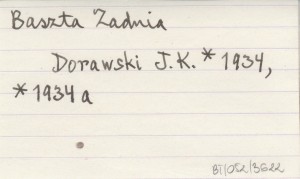 Baszta Zadnia
Dorawski J.K. * 1934,
* 1934 a
BT/052/3622